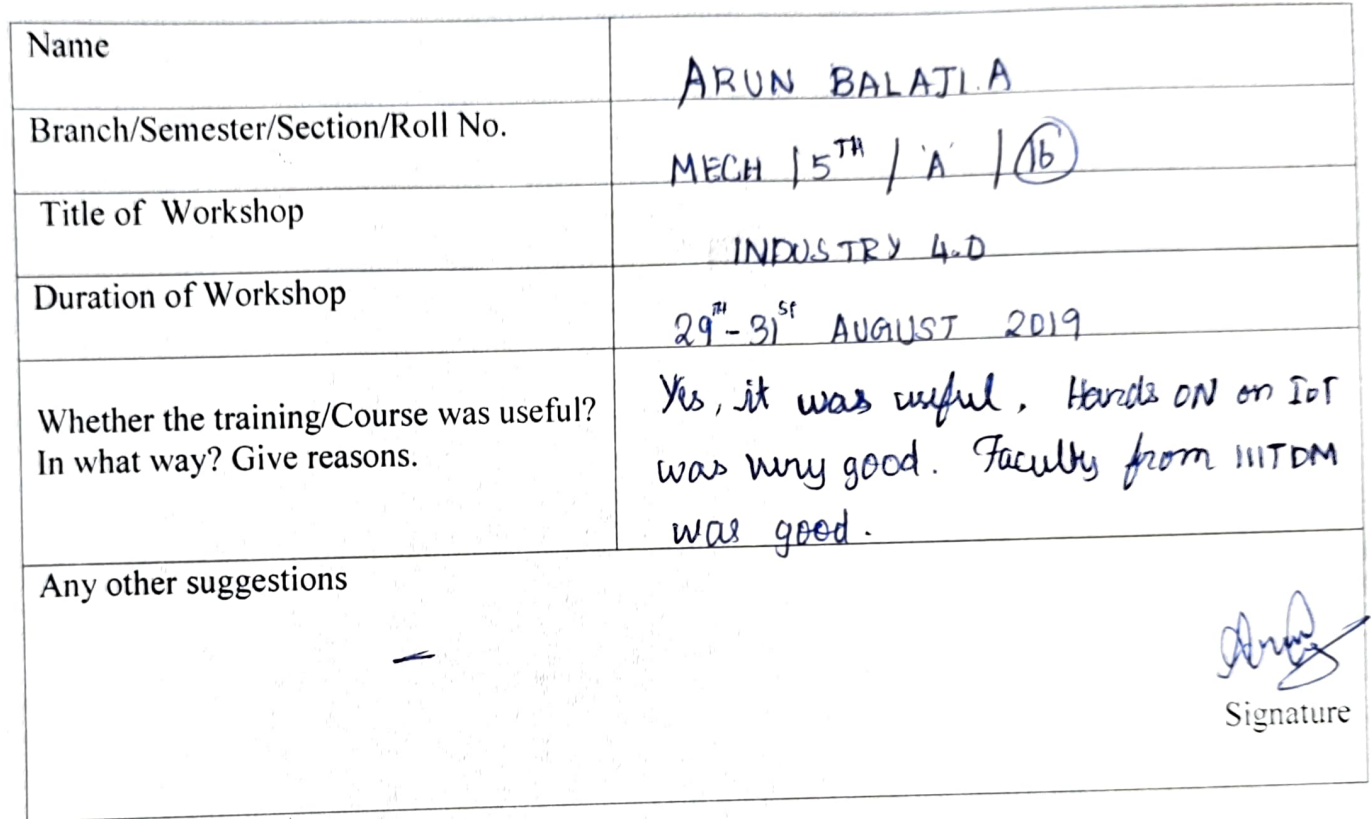 Name
ARUN BALAJI.A
Branch/Semester/Section/Roll No.
MECH | 5TH / 'A' / 16
Title of Workshop
INDUSTRY 4.0
Duration of Workshop
29TH - 31St AUGUST 2019
Whether the training/Course was useful?
In what way? Give reasons.
Yes, it was useful. Hands ON on IoT
was very good. Faculty from IIITDM
was good.
Any other suggestions
-
Arun
Signature